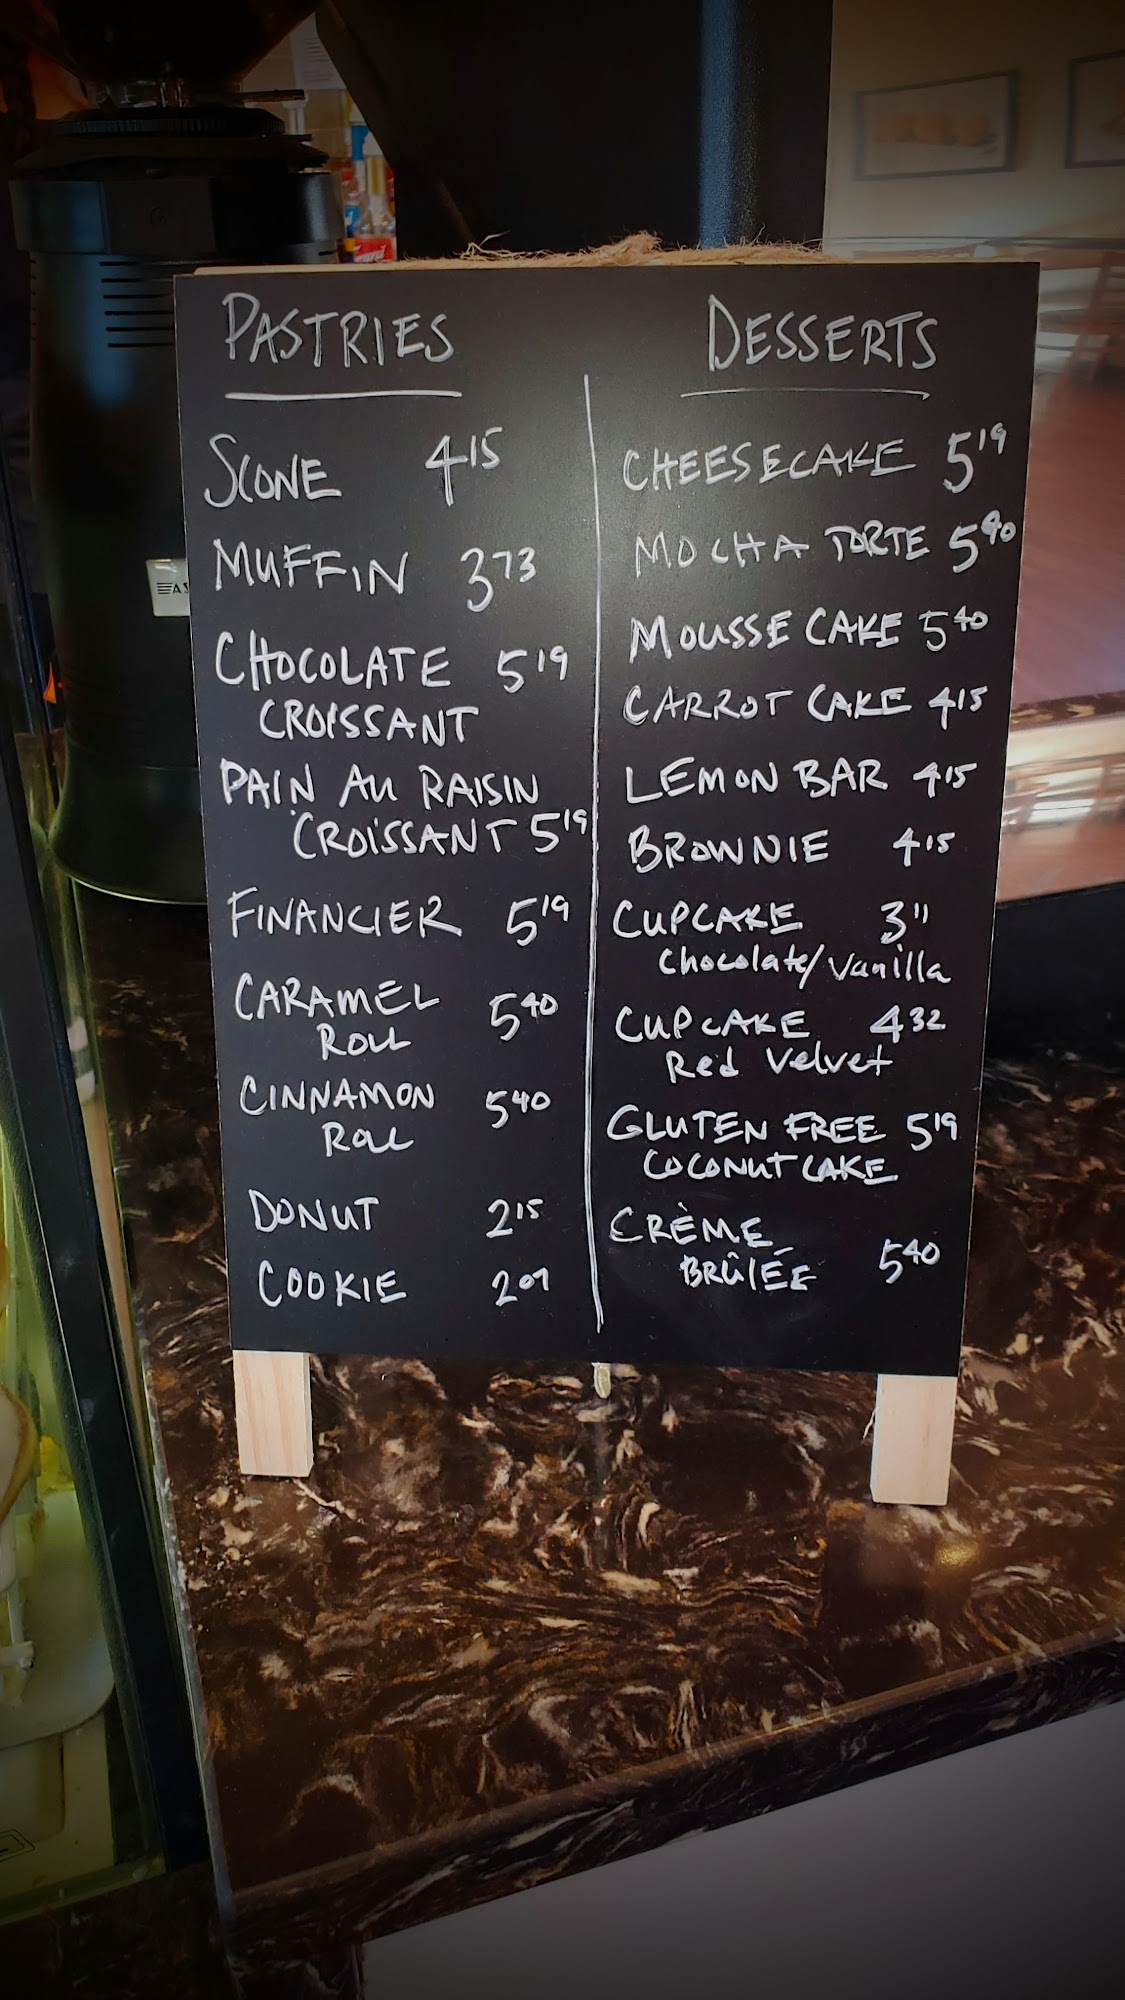 PASTRIES
SCONE 4.15
MUFFIN 3.73
CHOCOLATE 5.19
CROISSANT
PAIN AU RAISIN
CROISSANT 5.19
FINANCIER 5.19
CARAMEL
ROLL 5.40
CINNAMON 5.40
ROLL
DONUT 2.15
COOKIE 2.07
DESSERTS
CHEESECAKE 5.19
MOCHA TORTE 5.40
MOUSSE CAKE 5.40
CARROT CAKE 4.15
LEMON BAR 4.15
BROWNIE 4.15
CUPCAKE 3.11
Chocolate/Vanilla
CUPCAKE 4.32
Red Velvet
GLUTEN FREE 5.19
COCONUT CAKE
CRÈME
BRÛLÉE 5.40